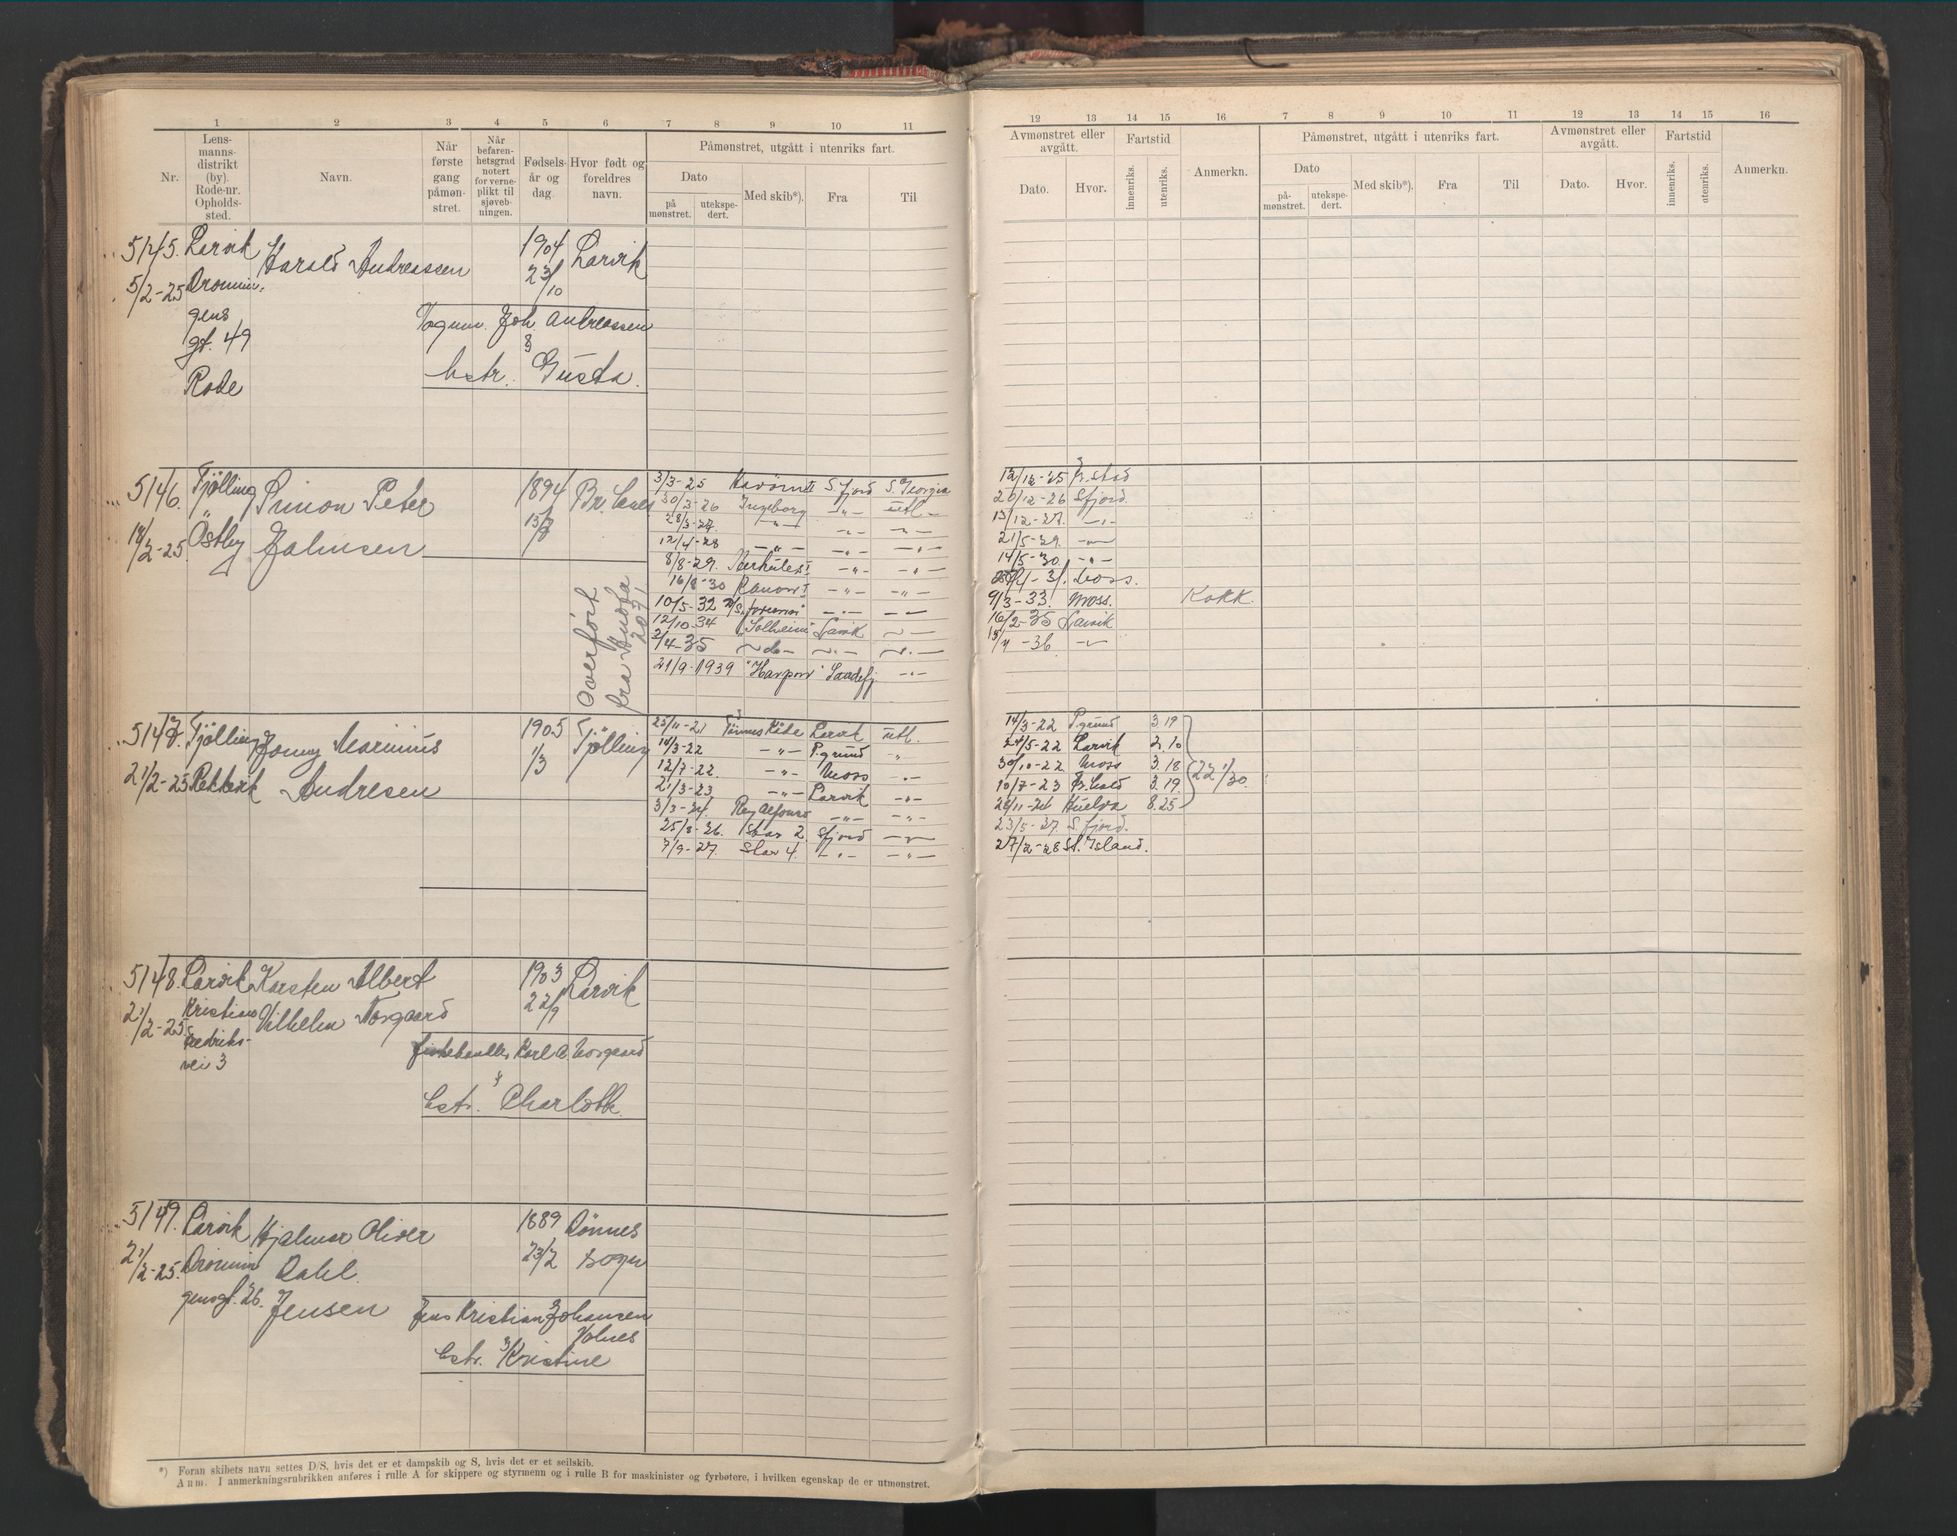 1 2 3 4 5 6 7 8 9 10 11
Nr.
Lens-
manns-
distrikt
(by).
Rode-nr.
Opholds-
sted.
Navn.
Når
første
gang
påmøn-
stret.
Når
befaren-
hetsgrad
notert
for verne-
plikt til
sjøveb-
ningen.
Fødsels-
år og
dag.
Hvor født og
foreldres
navn.
Påmønstret, utgått i utenriks fart.
Dato
på
mønstret.
utekspe-
dert.
Med skib*).
Fra
Til
5145. Larvik Harald Andreassen 1904 Larvik
5/2-25 Dronnin- 23/10
gens
gt. 49
Rode
Vognm. Joh. Andreassen
&
hstr. Gusta.
5146. Tjölling Simon Peter 1894 Br.
18/2-25 Östby Johnsen 13/7
Overført
fra Hudfa
2071
3/3-25 S.fjord S. Georgia
30/3-26 Ingeborg -"- Utl-
28/3-27 -"- -"- -"-
12/4-28 -"- -"- -"-
8/8-29. Herkules -"- -"-
16/8-30 -"- -"-
10/5-32 -"- -"-
12/10-34 "Solheim" Larvik -"-
2/4-35 -do- -"- -"-
21/9-1939 "Harpon" Sandefj. -"-
5147. Tjölling Jonny Marinius 1905 Tjölling
21/2-25 Rekkevik Andresen 1/3
23/11-21 Larvik Utl.
14/3-22 -"- P.grund "
12/7-22. -"- Moss -"-
21/3-23 -"- Larvik -"-
3/3-24. Rey Alfonso -"- -"-
25/8-26. Star 2 Sfjord -"-
7/9-27. Star 4. -"- -"-
5148. Larvik Karsten Albert 1903 Larvik
21/2-25. Kristian Vilhelm Norgaard 22/9
Fredriks-
vei 3
fiskehandler Karl A Norgaard
&
hstr. Charlotte.
5149. Larvik Hjalmar Oliver 1889 Dønnes
21/2-25. Dronnin Dahl 23/2 sogn
gensgt. 26. Jensen
Jens Kristian Johansen
Volnes
hstr. & Kristine
*) Foran skibets navn settes D/S, hvis det er et dampskib og S, hvis det er et seilskib.
Anm. I anmerkningsrubrikken anføres i rulle A for skippere og styrmenn og i rulle B for maskinister og fyrbøtere, i hvilken egenskap de er utmønstret.
12 13 14 15 16 7 8 9 10 11 12 13 14 15 16
Avmønstret eller
avgått.
Dato.
Hvor.
Fartstid
innenriks.
utenriks.
Anmerkn.
Påmønstret, utgått i utenriks fart.
Dato
på-
mønstret.
utekspe-
dert.
Med skib*).
Fra
Til
Avmønstret eller
avgått.
Dato.
Hvor.
Fartstid
innenriks.
utenriks.
Anmerkn.
12/12-25 Fr.stad
20/12-26 Sfjord.
13/12-27. -"-
21/5-29. -"-
14/5-30. -"-
Moss.
9/3-33. Moss. Kokk.
16/2-35 Larvik
-36 -"-
14/3-22 P.grund 3.19
24/5-22 Larvik 2.10
30/10-22 Moss 3.18
10/7-23 Fr.hald 3.19
28/11-24 Huelva 8.25
22 1/30.
23/5-27. S.fjord.
27/2-28 St. Island.